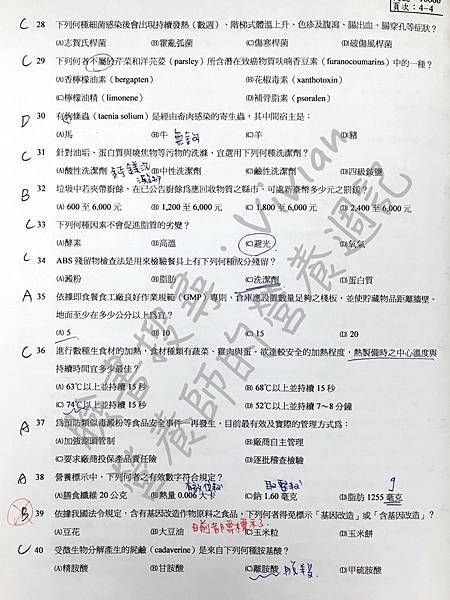 頁次：4-4
C 28 下列何種細菌感染後會出現持續發熱（數週）、階梯式體溫上升、色疹及腹瀉、腸出血、腸穿孔等症狀？
(A)志賀氏桿菌 (B)霍亂弧菌 (C)傷寒桿菌 (D)破傷風桿菌
C 29 下列何者不屬於芹菜和洋芫荽（parsley）所含潛在致癌物質呋喃香豆素（furanocoumarins）中的一種？
(A)香檸檬油素（bergapten） (B)花椒毒素（xanthotoxin）
(C)檸檬油精（limonene） (D)補骨脂素（psoralen）
D 30 有鉤條蟲（taenia solium）是經由畜肉感染的寄生蟲，其中間宿主是：
(A)馬 (B)牛 無鉤 (C)羊 (D)豬
C 31 針對油垢、蛋白質與燒焦物等污物的洗滌，宜選用下列何種洗潔劑？
(A)酸性洗潔劑 (B)中性洗潔劑 (C)鹼性洗潔劑 (D)四級銨鹽
B 32 垃圾中若夾帶廚餘，在已公告廚餘為應回收物質之縣市，可處新臺幣多少元之罰鍰？
(A) 600 至 6,000 元 (B) 1,200 至 6,000 元 (C) 1,800 至 6,000 元 (D) 2,400 至 6,000 元
C 33 下列何種因素不會促進脂質的劣變？
(A)酵素 (B)高溫 (C)避光 (D)氧氣
C 34 ABS 殘留物檢查法是用來檢驗餐具上有下列何種成分殘留？
(A)澱粉 (B)脂肪 (C)洗潔劑 (D)蛋白質
A 35 依據即食餐食工廠良好作業規範（GMP）專則，倉庫應設置數量足夠之棧板，並使貯藏物品距離牆壁、
地面至少在多少公分以上為宜？
(A) 5 (B) 10 (C) 15 (D) 20
C 36 進行數種生食材的加熱，食材種類有蔬菜、雞肉與蛋，欲達較安全的加熱程度，熱製備時之中心溫度與
持續時間宜多少最佳？
(A) 63℃以上並持續 15 秒 (B) 68℃以上並持續 15 秒
(C) 74℃以上並持續 15 秒 (D) 52℃以上並持續 7～8 分鐘
A 37 為預防類似毒澱粉等食品安全事件一再發生，目前最有效及實際的管理方式為：
(A)加強源頭管制 (B)廠商自主管理
(C)要求廠商投保產品責任險 (D)逐批稽查檢驗
A 38 營養標示中，下列何者之有效數字符合規定？
(A)膳食纖維 20 公克 (B)熱量 0.006 大卡 (C)鈉 1.60 毫克 (D)脂肪 1255 毫克
B 39 依據我國法令規定，含有基因改造作物原料之食品，下列何者得免標示「基因改造」或「含基因改造」？
(A)豆花 (B)大豆油 (C)玉米粒 (D)玉米餅
目前都要標示了
C 40 受微生物分解產生的屍鹼（cadaverine）是來自下列何種胺基酸？
(A)精胺酸 (B)甘胺酸 (C)離胺酸 (D)甲硫胺酸
臉書搜尋：Vivian
營養師的營養週記